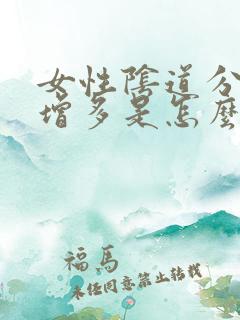 女性陰道分
增多是怎麼
福馬
未经同意禁止转载